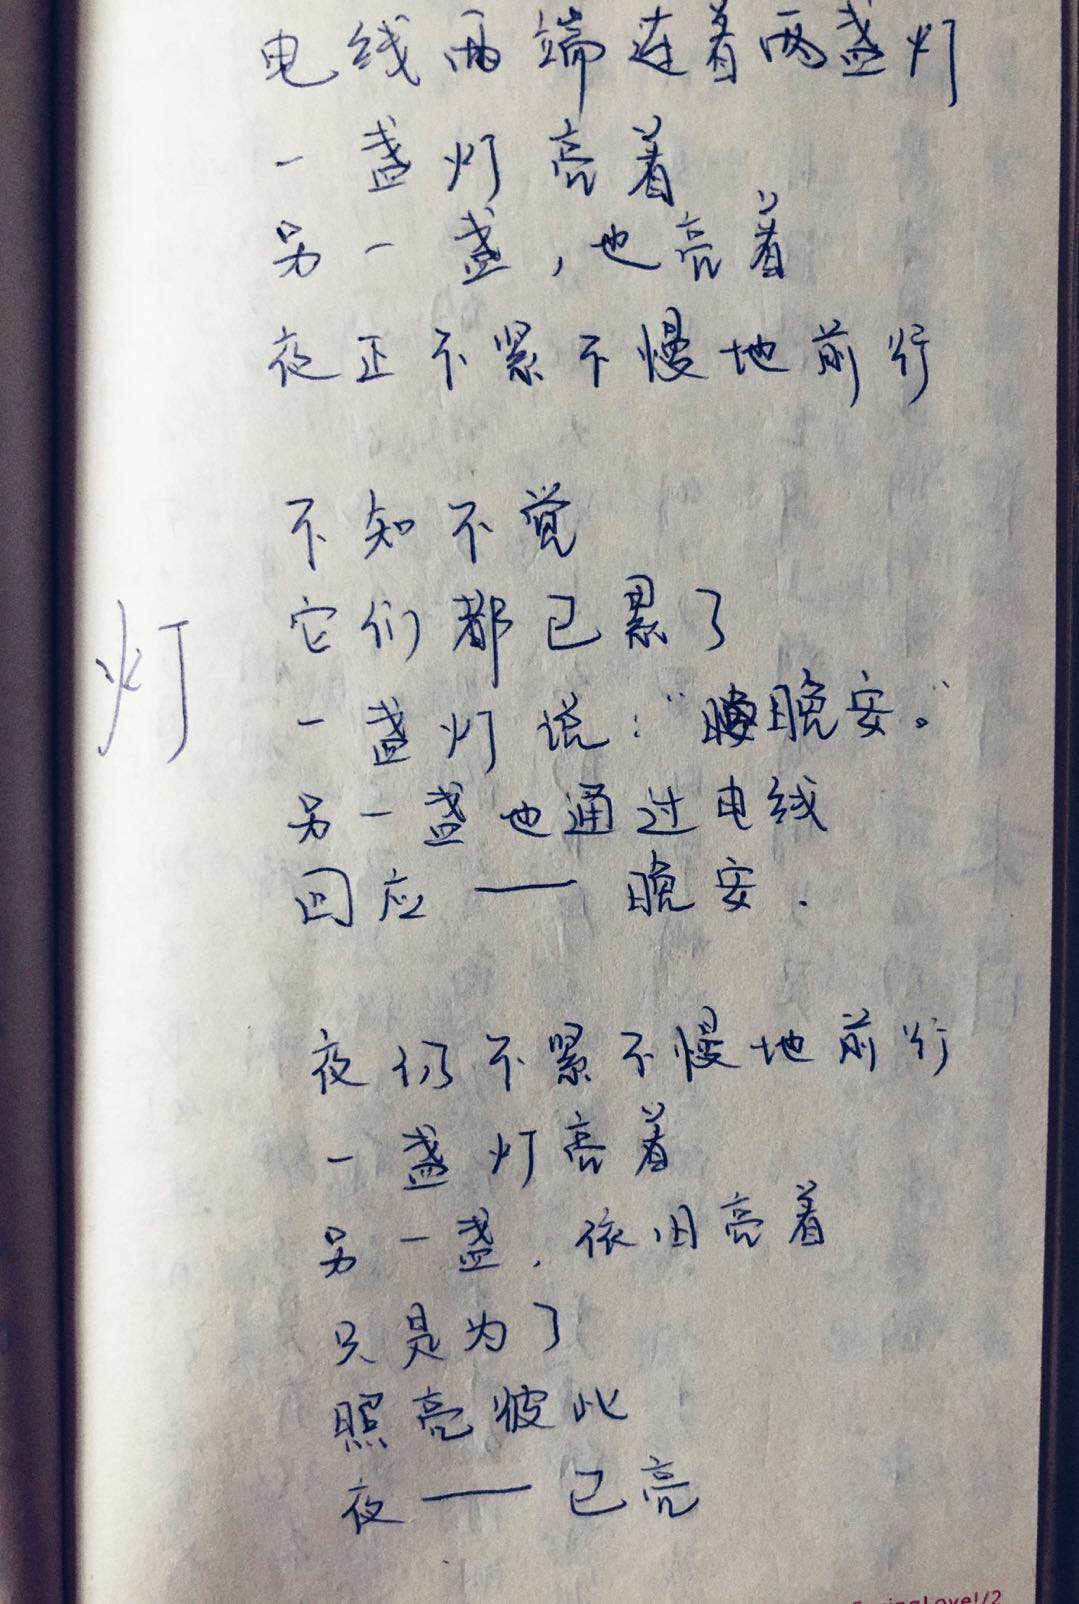 电线两端连着两盏灯
一盏灯亮着
另一盏，也亮着
夜正不紧不慢地前行
不知不觉
它们都已累了
灯
一盏灯说：“晚安。”
另一盏也通过电线
回应——晚安.
夜仍不紧不慢地前行
一盏灯亮着
另一盏，依旧亮着
只是为了
照亮彼此
夜——已亮